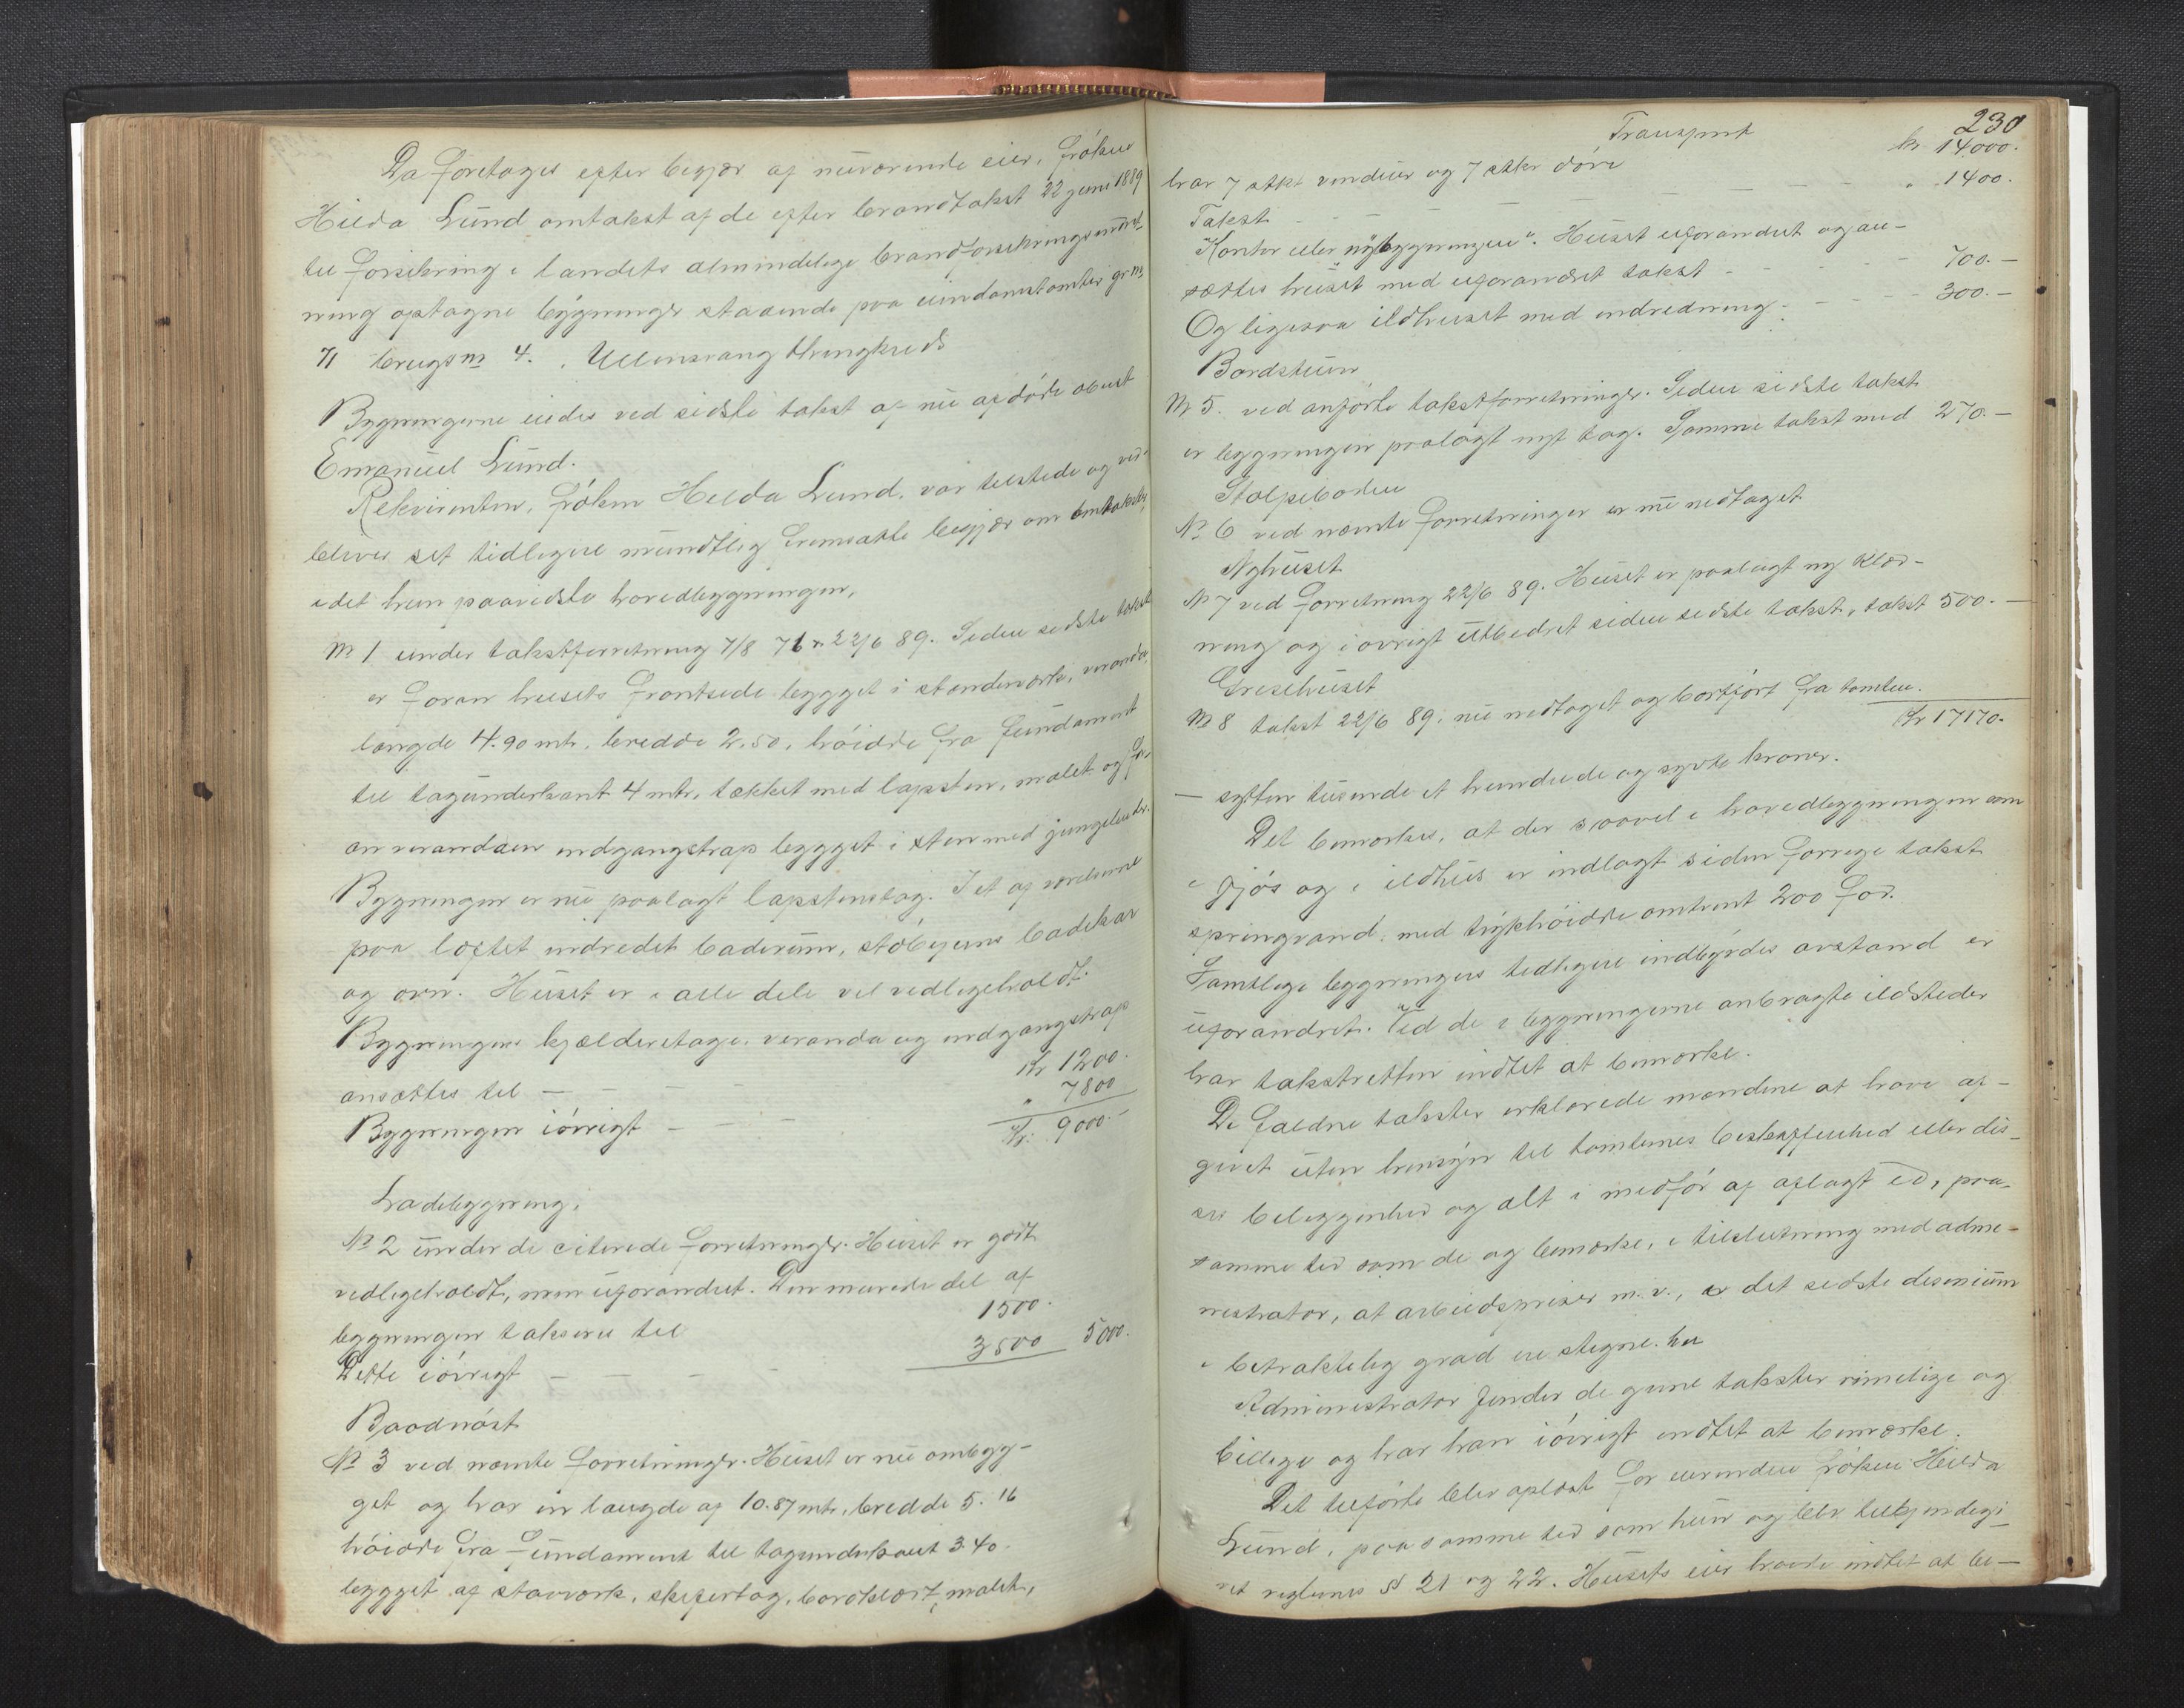 Da foretoges efter begjær af nuværende eier, frøken
Hilda Lund omtakst af de efter brandtakst 22 juni 1889
til forsikring i landets almindelige brandforsikringsindret-
ning optagne bygninger staaende paa eiendomstomter gr№
71 brugs№ 4. Ullensvang thinglag
Bygningerne eiedes ved sidste takst af nu afdøde oberst
Emanuel Lund.
Rekvirenten, frøken Hilda Lund, var tilstede og ved-
blever sit tidligere mundtlig fremsatte begjær om omtakst,
idet hun paaviste hovedbygningen,
№ 1 under takstforretning 7/8 76 & 22/6 89. Siden sidste takst
er foran husets frontside bygget i stenderværk, veranda,
længde 4.90 mtr, bredde 2.50, høidde fra fundament
til tagunderkant 4 mtr, tækket med lapsten, malet og for-
an verandaen indgangstrap bygget i sten med
Bygningen er nu paalagt lapstenstag. I et af værelserne
paa loftet indredet baderum, støbejerns badekar
og ovn. Huset er i alle dele vel vedligeholdt.
Bygningens kjælderetage, veranda og indgangstrap
ansættes til — Kr 1200.
Bygningen iøvrigt — „ 7800
Kr: 9000.—
Ladebygning,
№ 2 under de citerede forretninger. Huset er godt
vedligeholdt, men uforandret. Den murede del af
bygningen takseres til 1500.
Dette iøvrigt — 3500 5000.
Baadnøst
№ 3 ved nævnte forretninger. Huset er nu ombyg-
get og har en længde af 10.87 mtr, bredde 5.16
høidde fra fundament til tagunderkant 3.40.
bygget af stavverk, skifertag, bordklædt, malet,
230
Transport kr 14000.
har 7 stkr vinduer og 7 stkr døre
Takst — „ 1400.
Kontor eller "nybygningen". Huset uforandret og an-
sættes huset med uforandret takst — 700.—
Og ligesaa ildhuset med indredning — 300.—
Bordstuen
№ 5. ved anførte takstforretninger. Siden sidste takst
er bygningen paalagt nyt tag. Samme takst med 270.—
Stolpeboden
№ 6 ved nævnte forretninger er nu nedtaget
Nyhuset
№ 7 ved forretning 22/6 89. Huset er paalagt ny klæd-
ning og iøvrigt utbedret siden sidste takst, takst 500.—
Grisehuset
№ 8 takst 22/6 89, nu nedtaget og bortført fra tomten.
Kr 17170.
— sytten tusinde et hundrede og sytti kroner.
Det bemærkes, at der saavel i hovedbygningen som
i fjøs og i ildhus er indlagt siden forrige takst
springvand, med trykhøidde omtrent 200 fod.
Samtlige bygningers tidligere indbyrdes avstand er
uforandret. Ved de i bygningerne anbragte ildsteder
har takstretten indtet at bemærke.
De faldne takster erklærede mændene at have af-
givet uten hensyn til tomternes beskaffenhed eller dis-
ses beliggenhed og alt i medfør af aflagt ed, paa
samme tid som de og bemærke, i tilslutning med admi-
nistrator, at arbeidspriser m. v., er det sidste desenium
i betraktelig grad ere stegne her
Administrator finder de givne takster rimelige og
billige og har han iøvrigt indtet at bemærke.
Det tilførte blev oplæst for eierinden frøken Hilda
Lund, paa samme tid som hun og blev tilkjendegi-
vet reglernes §§ 21 og 22. Husets eier havde indtet at be-